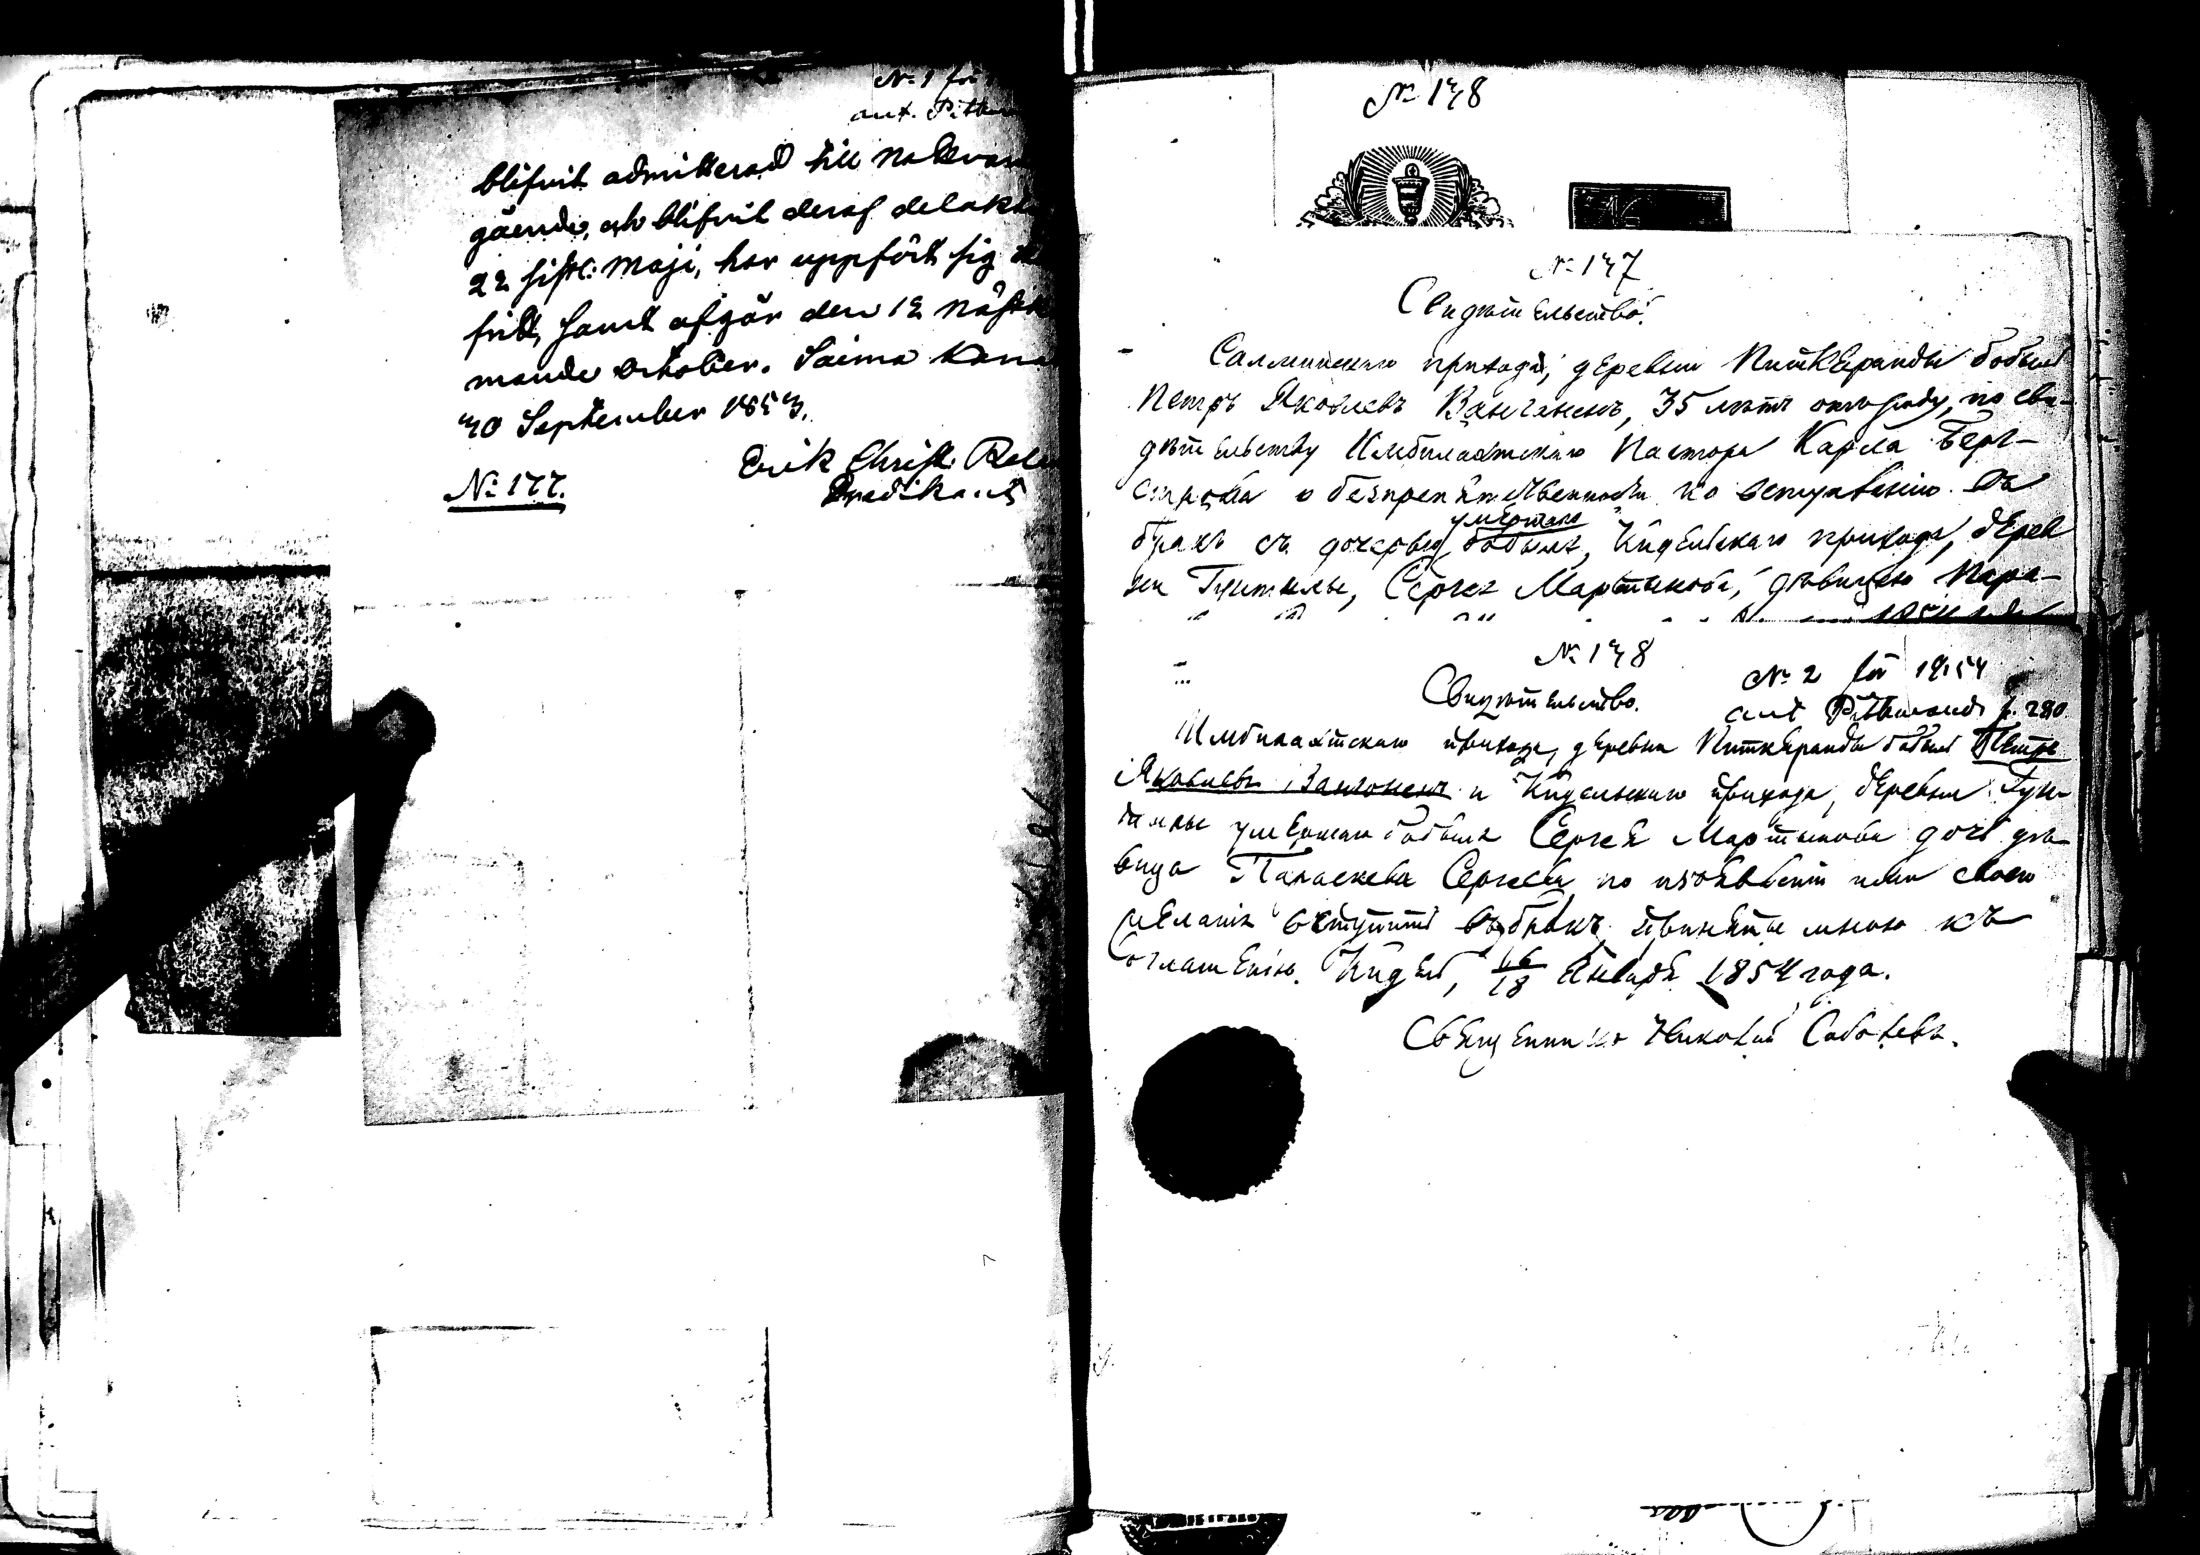 No 1 för
ant. Pitk
blifvit admitterad till Nattvard
gående, och blifvit deraf delakt
22 sistl. Maji, har uppfört sig
fritt, samt afgår den 12 nästk
mande October. Saima Kana
30 September 1853.
Erik Christ.
No 177.
Predikant
No 138
No 137
Свидѣтельство.
Салминскаго прихода, деревни Питкеранды бобыль
Петръ Яковлевъ Вангоненъ, 35 лѣтъ отъ роду, по сви-
дѣтельству Имбилахтскаго Пастора Карла Берг-
строма о безпрепятственности ко вступленію въ
умершаго
бракъ съ дочерью бобыля, Кидельскаго прихода, дерев
ни Гунтилы, Сергея Мартынова, дѣвицею Пара-
No 138
No 2 för 1854
Свидѣтельство.
ant Pitkerand p. 280.
Имбилахтскаго прихода, деревни Питкеранды бобыль Петръ
Яковлевъ Вангоненъ и Кидельскаго прихода, деревни Гун-
тилы умершаго бобыля Сергея Мартынова дочь дѣ-
вица Параскева Сергеева по изъявленіи ими своего
желанія вступить въ бракъ, приняты мною къ
соглашенію. Кидель, 16/18 Января 1854 года.
Священникъ Николай Соболевъ.